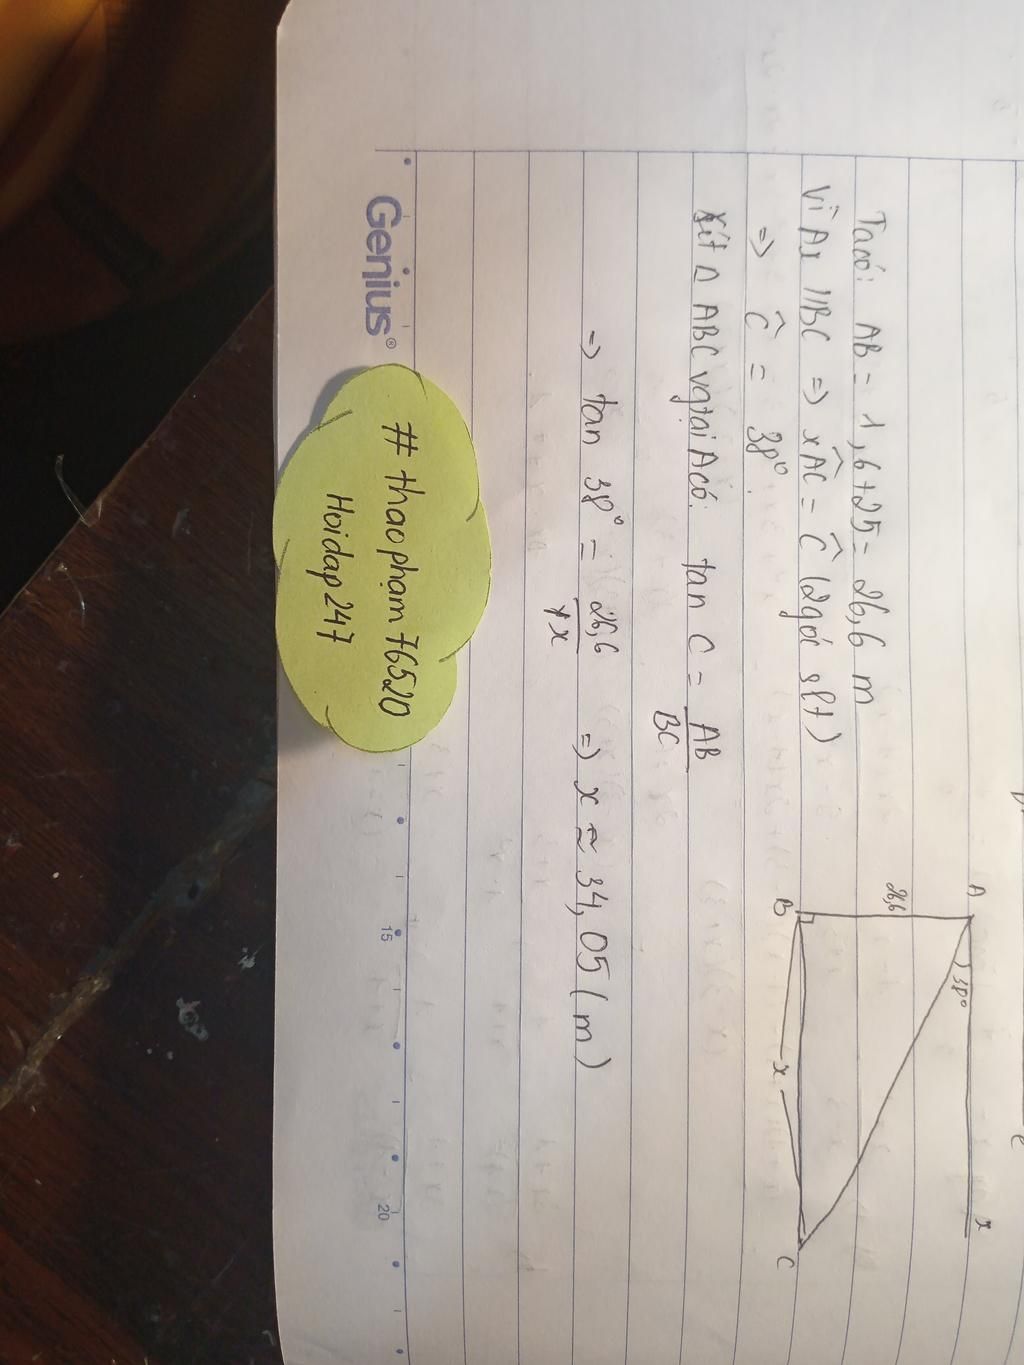 Ta có: AB = 1,6+25 = 26,6 m
Vì Ax // BC => xÂC = Ĉ (2 góc slt)
=> Ĉ = 38°
Xét △ ABC vg tại A có: tan C = AB/BC
=> tan 38° = 26,6/x => x ≈ 34,05 (m)
A
38°
x
26,6
B
x
C
Genius®
# thaophạm76520
Hoidap247
15
20